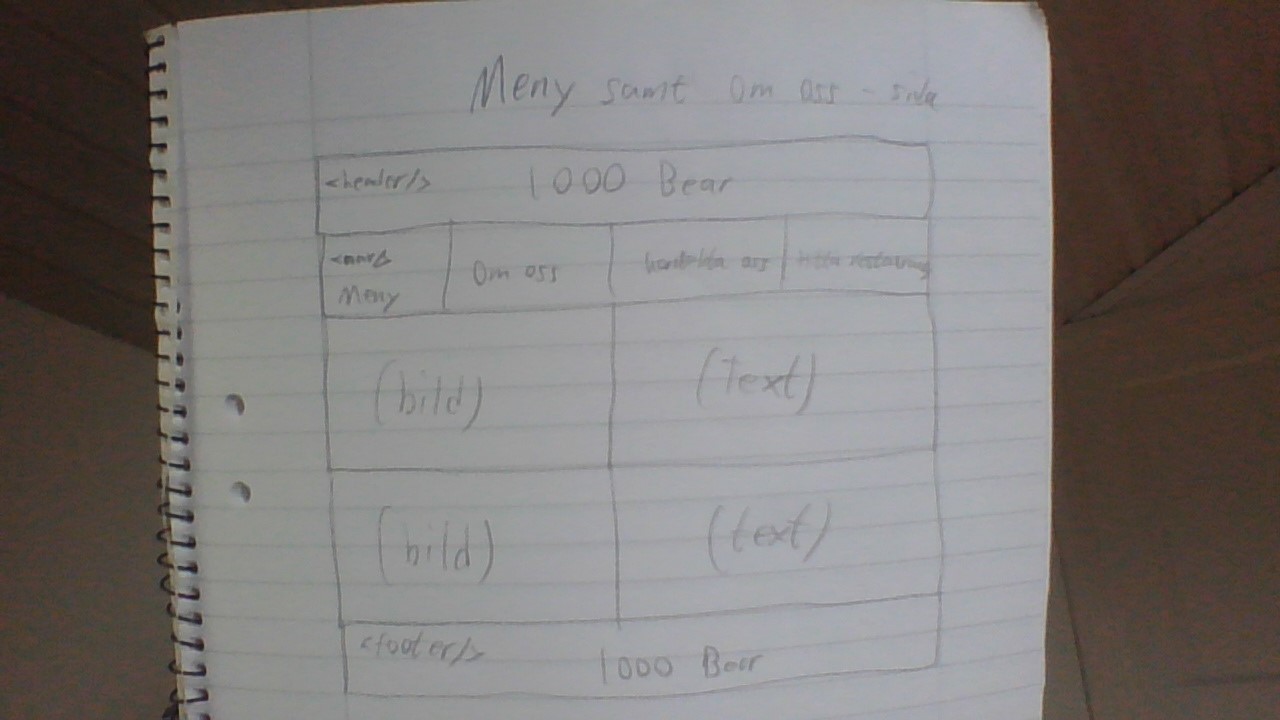 Meny samt Om oss - sida
<header/> 1000 Bear
<nav/>
Meny Om oss kontakta oss hitta restaurang
(bild) (Text)
(bild) (text)
<footer/> 1000 Bear